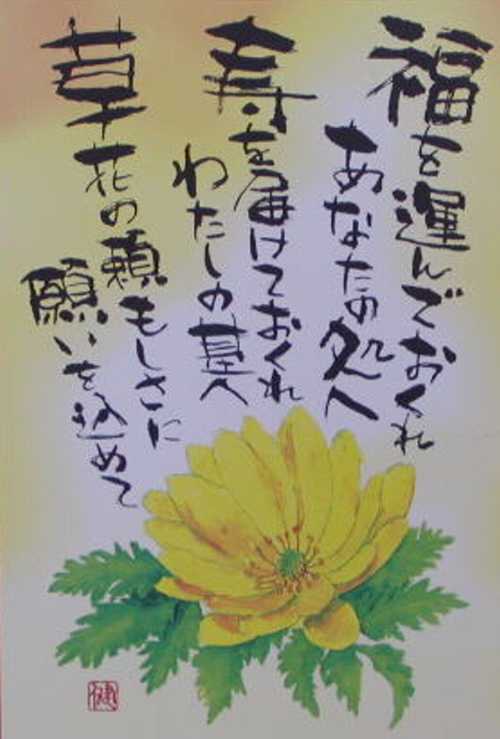 福を運んでおくれ
あなたの処へ
寿を届けておくれ
わたしの基へ
草花の頼もしさに
願いを込めて
健